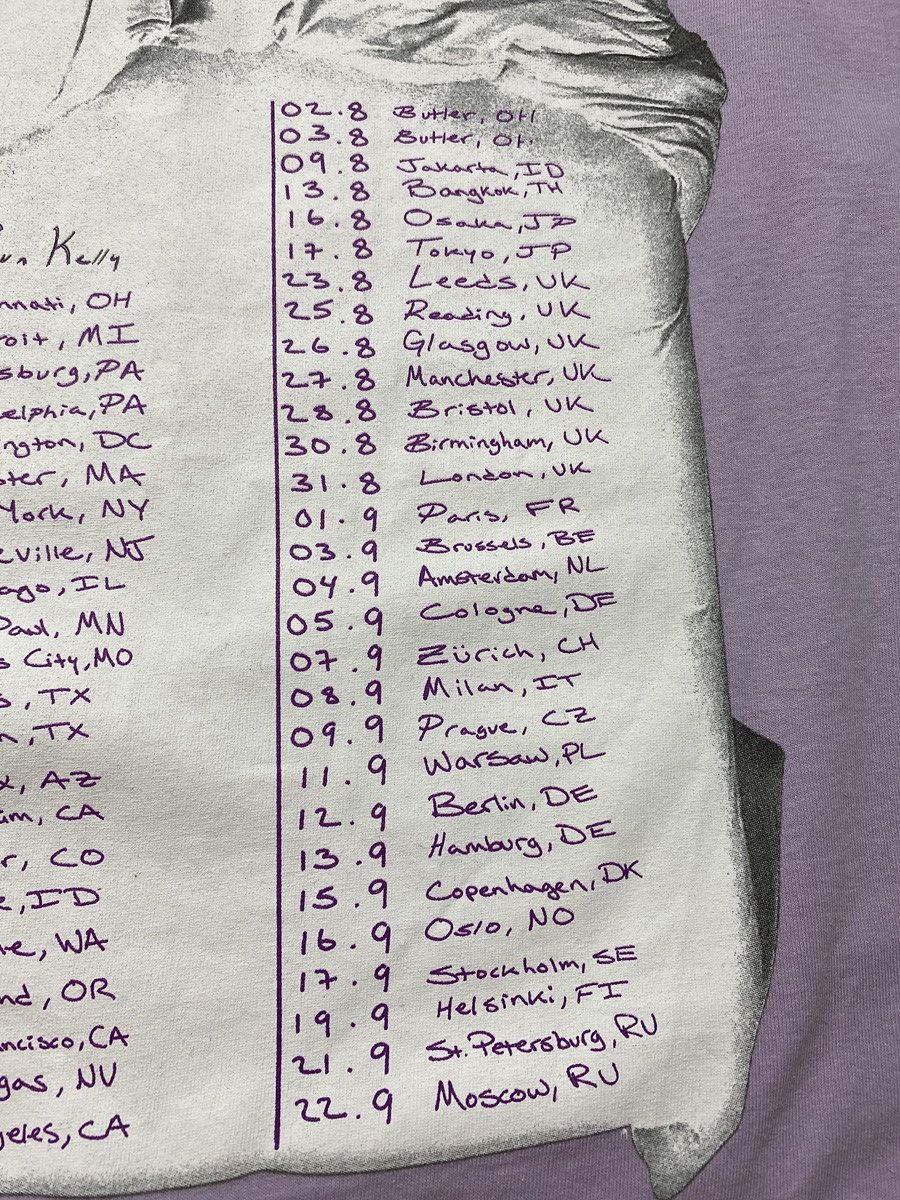 Kelly
nnati, OH
roit, MI
sburg, PA
elphia, PA
ngton, DC
ster, MA
York, NY
eville, NJ
ago, IL
Paul, MN
s City, MO
s, TX
n, TX
x, AZ
im, CA
r, CO
e, ID
ne, WA
nd, OR
ncisco, CA
gas, NV
geles, CA
02.8 Butler, OH
03.8 Butler, OH
09.8 Jakarta, ID
13.8 Bangkok, TH
16.8 Osaka, JP
17.8 Tokyo, JP
23.8 Leeds, UK
25.8 Reading, UK
26.8 Glasgow, UK
27.8 Manchester, UK
28.8 Bristol, UK
30.8 Birmingham, UK
31.8 London, UK
01.9 Paris, FR
03.9 Brussels, BE
04.9 Amsterdam, NL
05.9 Cologne, DE
07.9 Zürich, CH
08.9 Milan, IT
09.9 Prague, CZ
11.9 Warsaw, PL
12.9 Berlin, DE
13.9 Hamburg, DE
15.9 Copenhagen, DK
16.9 Oslo, NO
17.9 Stockholm, SE
19.9 Helsinki, FI
21.9 St. Petersburg, RU
22.9 Moscow, RU